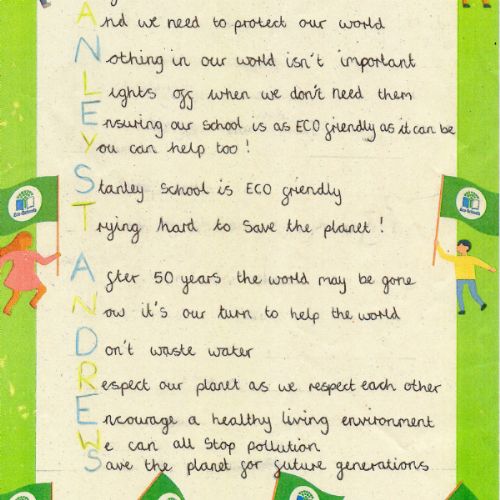 And we need to protect our world
Nothing in our world isn't important
Lights off when we don't need them
Ensuring our school is as ECO friendly as it can be
You can help too!
Stanley School is ECO friendly
Trying hard to save the planet!
After 50 years the world may be gone
Now it's our turn to help the world
Don't waste water
Respect our planet as we respect each other
Encourage a healthy living environment
We can all stop pollution
Save the planet for future generations
Eco-Schools
Eco-Schools